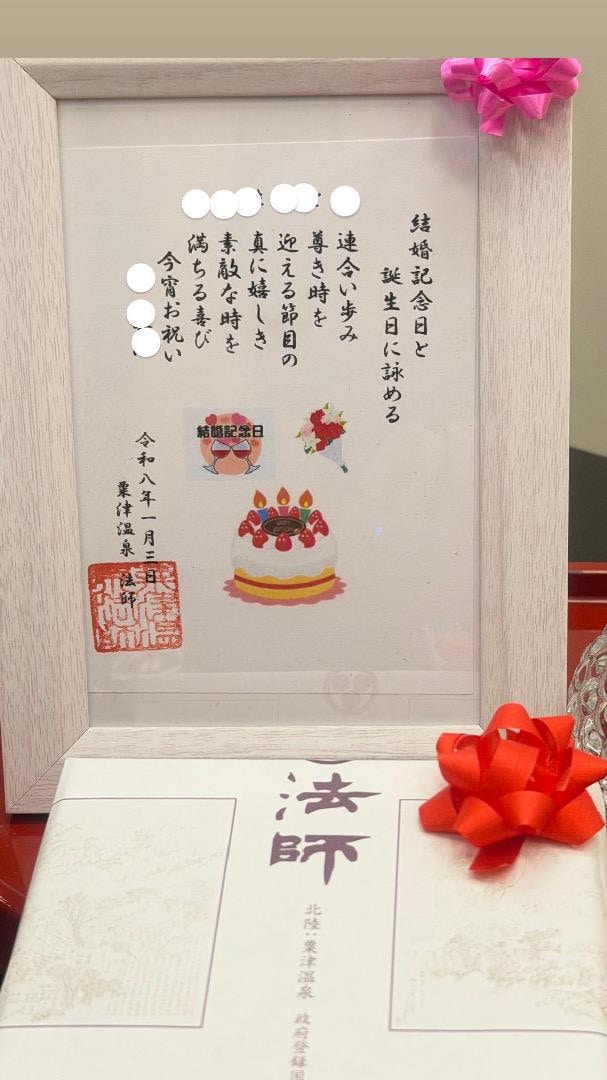 結婚記念日と
誕生日に詠める
連合い歩み
尊き時を
迎える節目の
真に嬉しき
素敵な時を
満ちる喜び
今宵お祝い
結婚記念日
令和八年一月三日
粟津温泉 法師
法師
北陸:粟津温泉 政府登録国